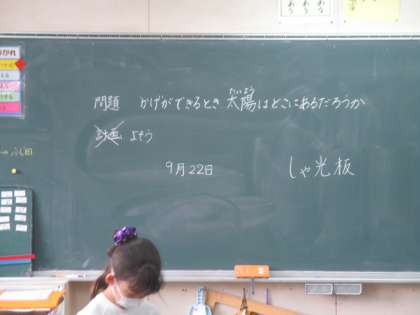 問題 かげができるとき太陽はどこにあるだろうか
たいよう
計画 よそう
9月22日
しゃ光板